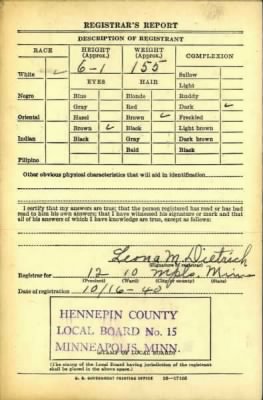 REGISTRAR'S REPORT
DESCRIPTION OF REGISTRANT
RACE HEIGHT (Approx.) WEIGHT (Approx.) COMPLEXION
6-1 155
White ✓ EYES HAIR Sallow
Light
Negro Blue Blonde Ruddy
Gray Red Dark ✓
Oriental Hazel Brown ✓ Freckled
Brown ✓ Black Light brown
Indian Black Gray Dark brown
Bald Black
Filipino
Other obvious physical characteristics that will aid in identification
I certify that my answers are true; that the person registered has read or has had
read to him his own answers; that I have witnessed his signature or mark and that
all of his answers of which I have knowledge are true, except as follows:
Leona M. Dietrich
(Signature of registrar)
Registrar for 12 10 Mpls. Minn
(Precinct) (Ward) (City or county) (State)
Date of registration 10/16-40
HENNEPIN COUNTY
LOCAL BOARD No. 15
MINNEAPOLIS, MINN.
(STAMP OF LOCAL BOARD)
(The stamp of the Local Board having jurisdiction of the registrant
shall be placed in the above space.)
U. S. GOVERNMENT PRINTING OFFICE 16-17105